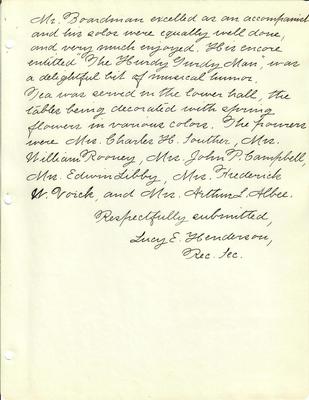 Mr. Boardman excelled as an accompanist
and his solos were equally well done,
and very much enjoyed. His encore
entitled "The Hurdy Gurdy Man", was
a delightful bit of musical humor.
Tea was served in the lower hall, the
tables being decorated with spring
flowers in various colors. The pourers
were Mrs. Charles H. Souther, Mrs.
William Rooney, Mrs. John P. Campbell,
Mrs. Edwin Libby, Mrs. Frederick
W. Voick, and Mrs. Arthur L. Albee.
Respectfully submitted,
Lucy E. Henderson,
Rec. Sec.